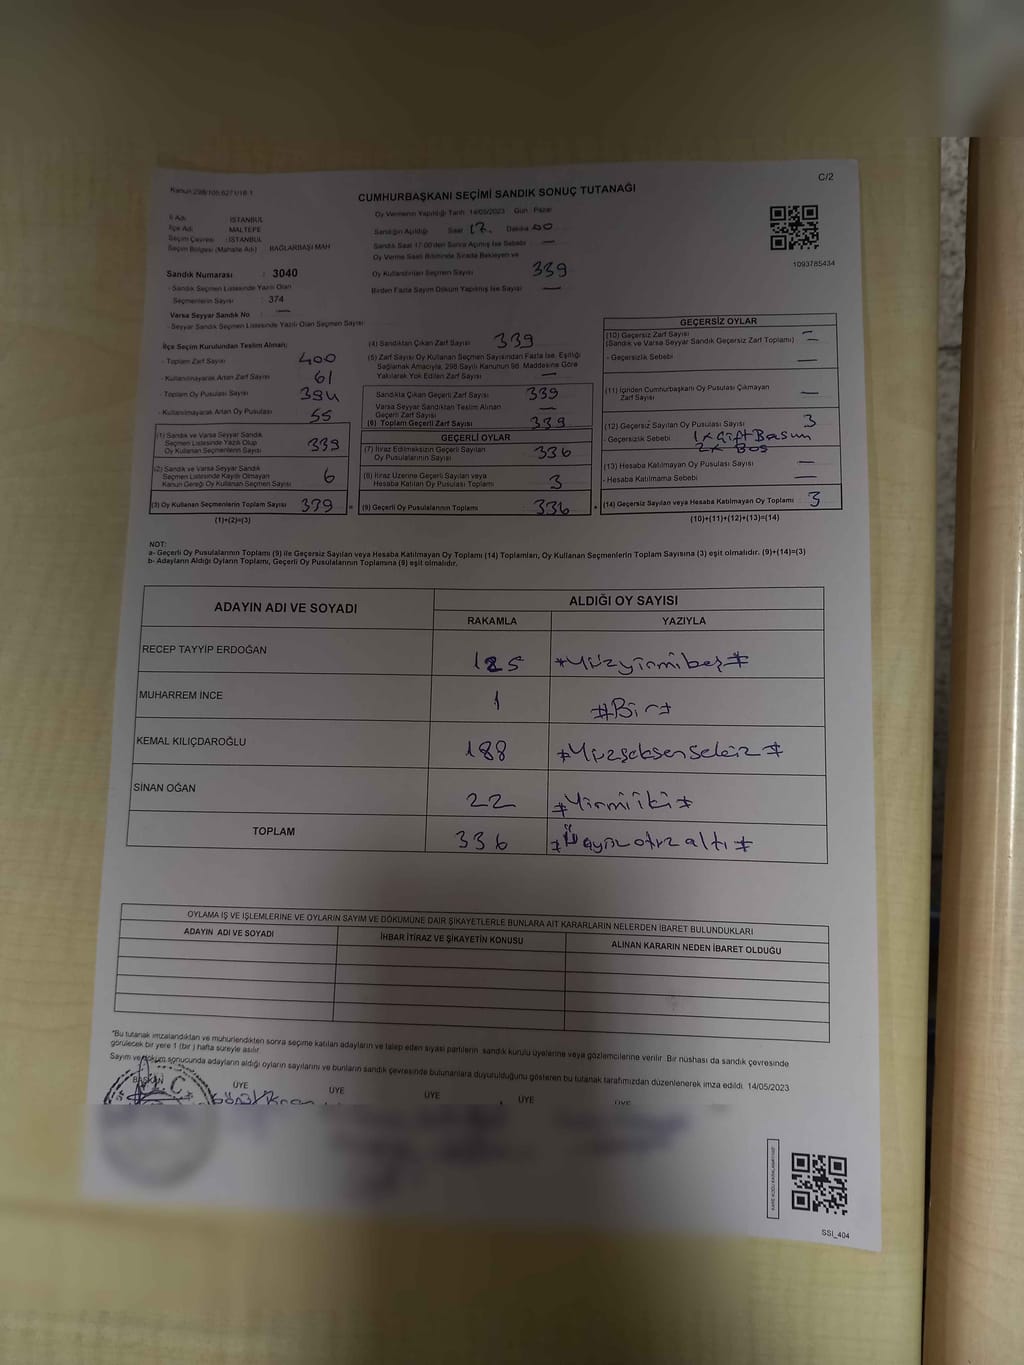 C/2
Kanun 298/105 6271/18-1
CUMHURBAŞKANI SEÇİMİ SANDIK SONUÇ TUTANAĞI
İl Adı : İSTANBUL
İlçe Adı : MALTEPE
Seçim Çevresi : İSTANBUL
Seçim Bölgesi (Mahalle Adı) : BAĞLARBAŞI MAH
Sandık Numarası : 3040
- Sandık Seçmen Listesinde Yazılı Olan
Seçmenlerin Sayısı : 374
Varsa Seyyar Sandık No —
- Seyyar Sandık Seçmen Listesinde Yazılı Olan Seçmen Sayısı
Oy Vermenin Yapıldığı Tarih : 14/05/2023 Gün : Pazar
Sandığın Açıldığı Saat 17. Dakika 00
Sandık Saat 17:00'den Sonra Açılmış İse Sebebi —
Oy Verme Saati Bitiminde Sırada Bekleyen ve
Oy Kullandırılan Seçmen Sayısı 339
Birden Fazla Sayım Döküm Yapılmış İse Sayısı —
1093785434
İlçe Seçim Kurulundan Teslim Alınan;
- Toplam Zarf Sayısı 400
- Kullanılmayarak Artan Zarf Sayısı 61
- Toplam Oy Pusulası Sayısı 394
- Kullanılmayarak Artan Oy Pusulası 55
(1) Sandık ve Varsa Seyyar Sandık
Seçmen Listesinde Yazılı Olup
Oy Kullanan Seçmenlerin Sayısı 339
(2) Sandık ve Varsa Seyyar Sandık
Seçmen Listesinde Kayıtlı Olmayan
Kanun Gereği Oy Kullanan Seçmen Sayısı 6
(3) Oy Kullanan Seçmenlerin Toplam Sayısı 339
(1)+(2)=(3)
(4) Sandıktan Çıkan Zarf Sayısı 339
(5) Zarf Sayısı Oy Kullanan Seçmen Sayısından Fazla İse, Eşitliği
Sağlamak Amacıyla, 298 Sayılı Kanunun 98. Maddesine Göre
Yakılarak Yok Edilen Zarf Sayısı —
Sandıkta Çıkan Geçerli Zarf Sayısı 339
Varsa Seyyar Sandıktan Teslim Alınan
Geçerli Zarf Sayısı —
(6) Toplam Geçerli Zarf Sayısı 339
GEÇERLİ OYLAR
(7) İtiraz Edilmeksizin Geçerli Sayılan
Oy Pusulasının Sayısı 336
(8) İtiraz Üzerine Geçerli Sayılan veya
Hesaba Katılan Oy Pusulası Toplamı 3
(9) Geçerli Oy Pusulalarının Toplamı 336
GEÇERSİZ OYLAR
(10) Geçersiz Zarf Sayısı —
(Sandık ve Varsa Seyyar Sandık Geçersiz Zarf Toplamı) —
- Geçersizlik Sebebi —
(11) İçinden Cumhurbaşkanı Oy Pusulası Çıkmayan
Zarf Sayısı —
(12) Geçersiz Sayılan Oy Pusulası Sayısı 3
- Geçersizlik Sebebi 1x Çift Basım
2x Boş
(13) Hesaba Katılmayan Oy Pusulası Sayısı —
- Hesaba Katılmama Sebebi —
(14) Geçersiz Sayılan veya Hesaba Katılmayan Oy Toplamı 3
(10)+(11)+(12)+(13)=(14)
NOT:
a- Geçerli Oy Pusulalarının Toplamı (9) ile Geçersiz Sayılan veya Hesaba Katılmayan Oy Toplamı (14) Toplamları, Oy Kullanan Seçmenlerin Toplam Sayısına (3) eşit olmalıdır. (9)+(14)=(3)
b- Adayların Aldığı Oyların Toplamı, Geçerli Oy Pusulalarının Toplamına (9) eşit olmalıdır.
ADAYIN ADI VE SOYADI ALDIĞI OY SAYISI
RAKAMLA YAZIYLA
RECEP TAYYİP ERDOĞAN 125 #Yüzyirmibeş#
MUHARREM İNCE 1 #Bir#
KEMAL KILIÇDAROĞLU 188 #Yüzseksensekiz#
SİNAN OĞAN 22 #Yirmiiki#
TOPLAM 336
OYLAMA İŞ VE İŞLEMLERİNE VE OYLARIN SAYIM VE DÖKÜMÜNE DAİR ŞİKAYETLERLE BUNLARA AİT KARARLARIN NELERDEN İBARET BULUNDUKLARI
ADAYIN ADI VE SOYADI İHBAR İTİRAZ VE ŞİKAYETİN KONUSU ALINAN KARARIN NEDEN İBARET OLDUĞU
*Bu tutanak imzalandıktan ve mühürlendikten sonra seçime katılan adayların ve talep eden siyasi partilerin sandık kurulu üyelerine veya gözlemcilerine verilir. Bir nüshası da sandık çevresinde
görülecek bir yere 1 (bir) hafta süreyle asılır.
Sayım ve döküm sonucunda adayların aldığı oyların sayılarını ve bunların sandık çevresinde bulunanlara duyurulduğunu gösteren bu tutanak tarafımızdan düzenlenerek imza edildi. 14/05/2023
BAŞKAN ÜYE ÜYE ÜYE ÜYE ÜYE
SSI_404